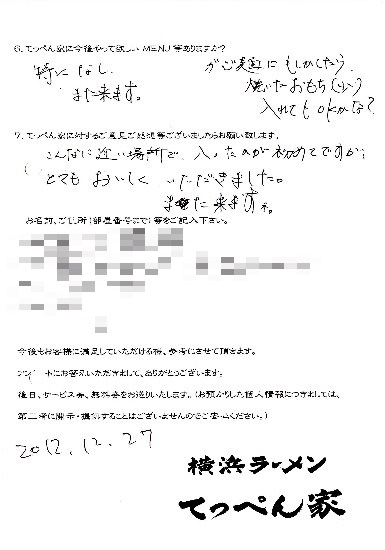 6.てっぺん家に今後やって欲しいMENU等ありますか?
特になし
また来ます。
焼いたおもち
入れてもOKかな?
7.てっぺん家に対するご意見ご感想等ございましたらお願い致します。
こんなに近い場所で、入ったのが初めてですが、
とてもおいしくいただきました。
また来ますネ。
お名前、ご住所(部屋番号まで)等をご記入下さい。
今後もお客様に満足していただける様、参考にさせて頂きます。
トにお答えいただきまして、ありがとうございます。
後日、サービス券、無料券をお送りいたします。(お預かりした個人情報につきましては、
第三者に開示・提供することはございませんのでご安心ください。)
2012.12.27
横浜ラーメン
てっぺん家